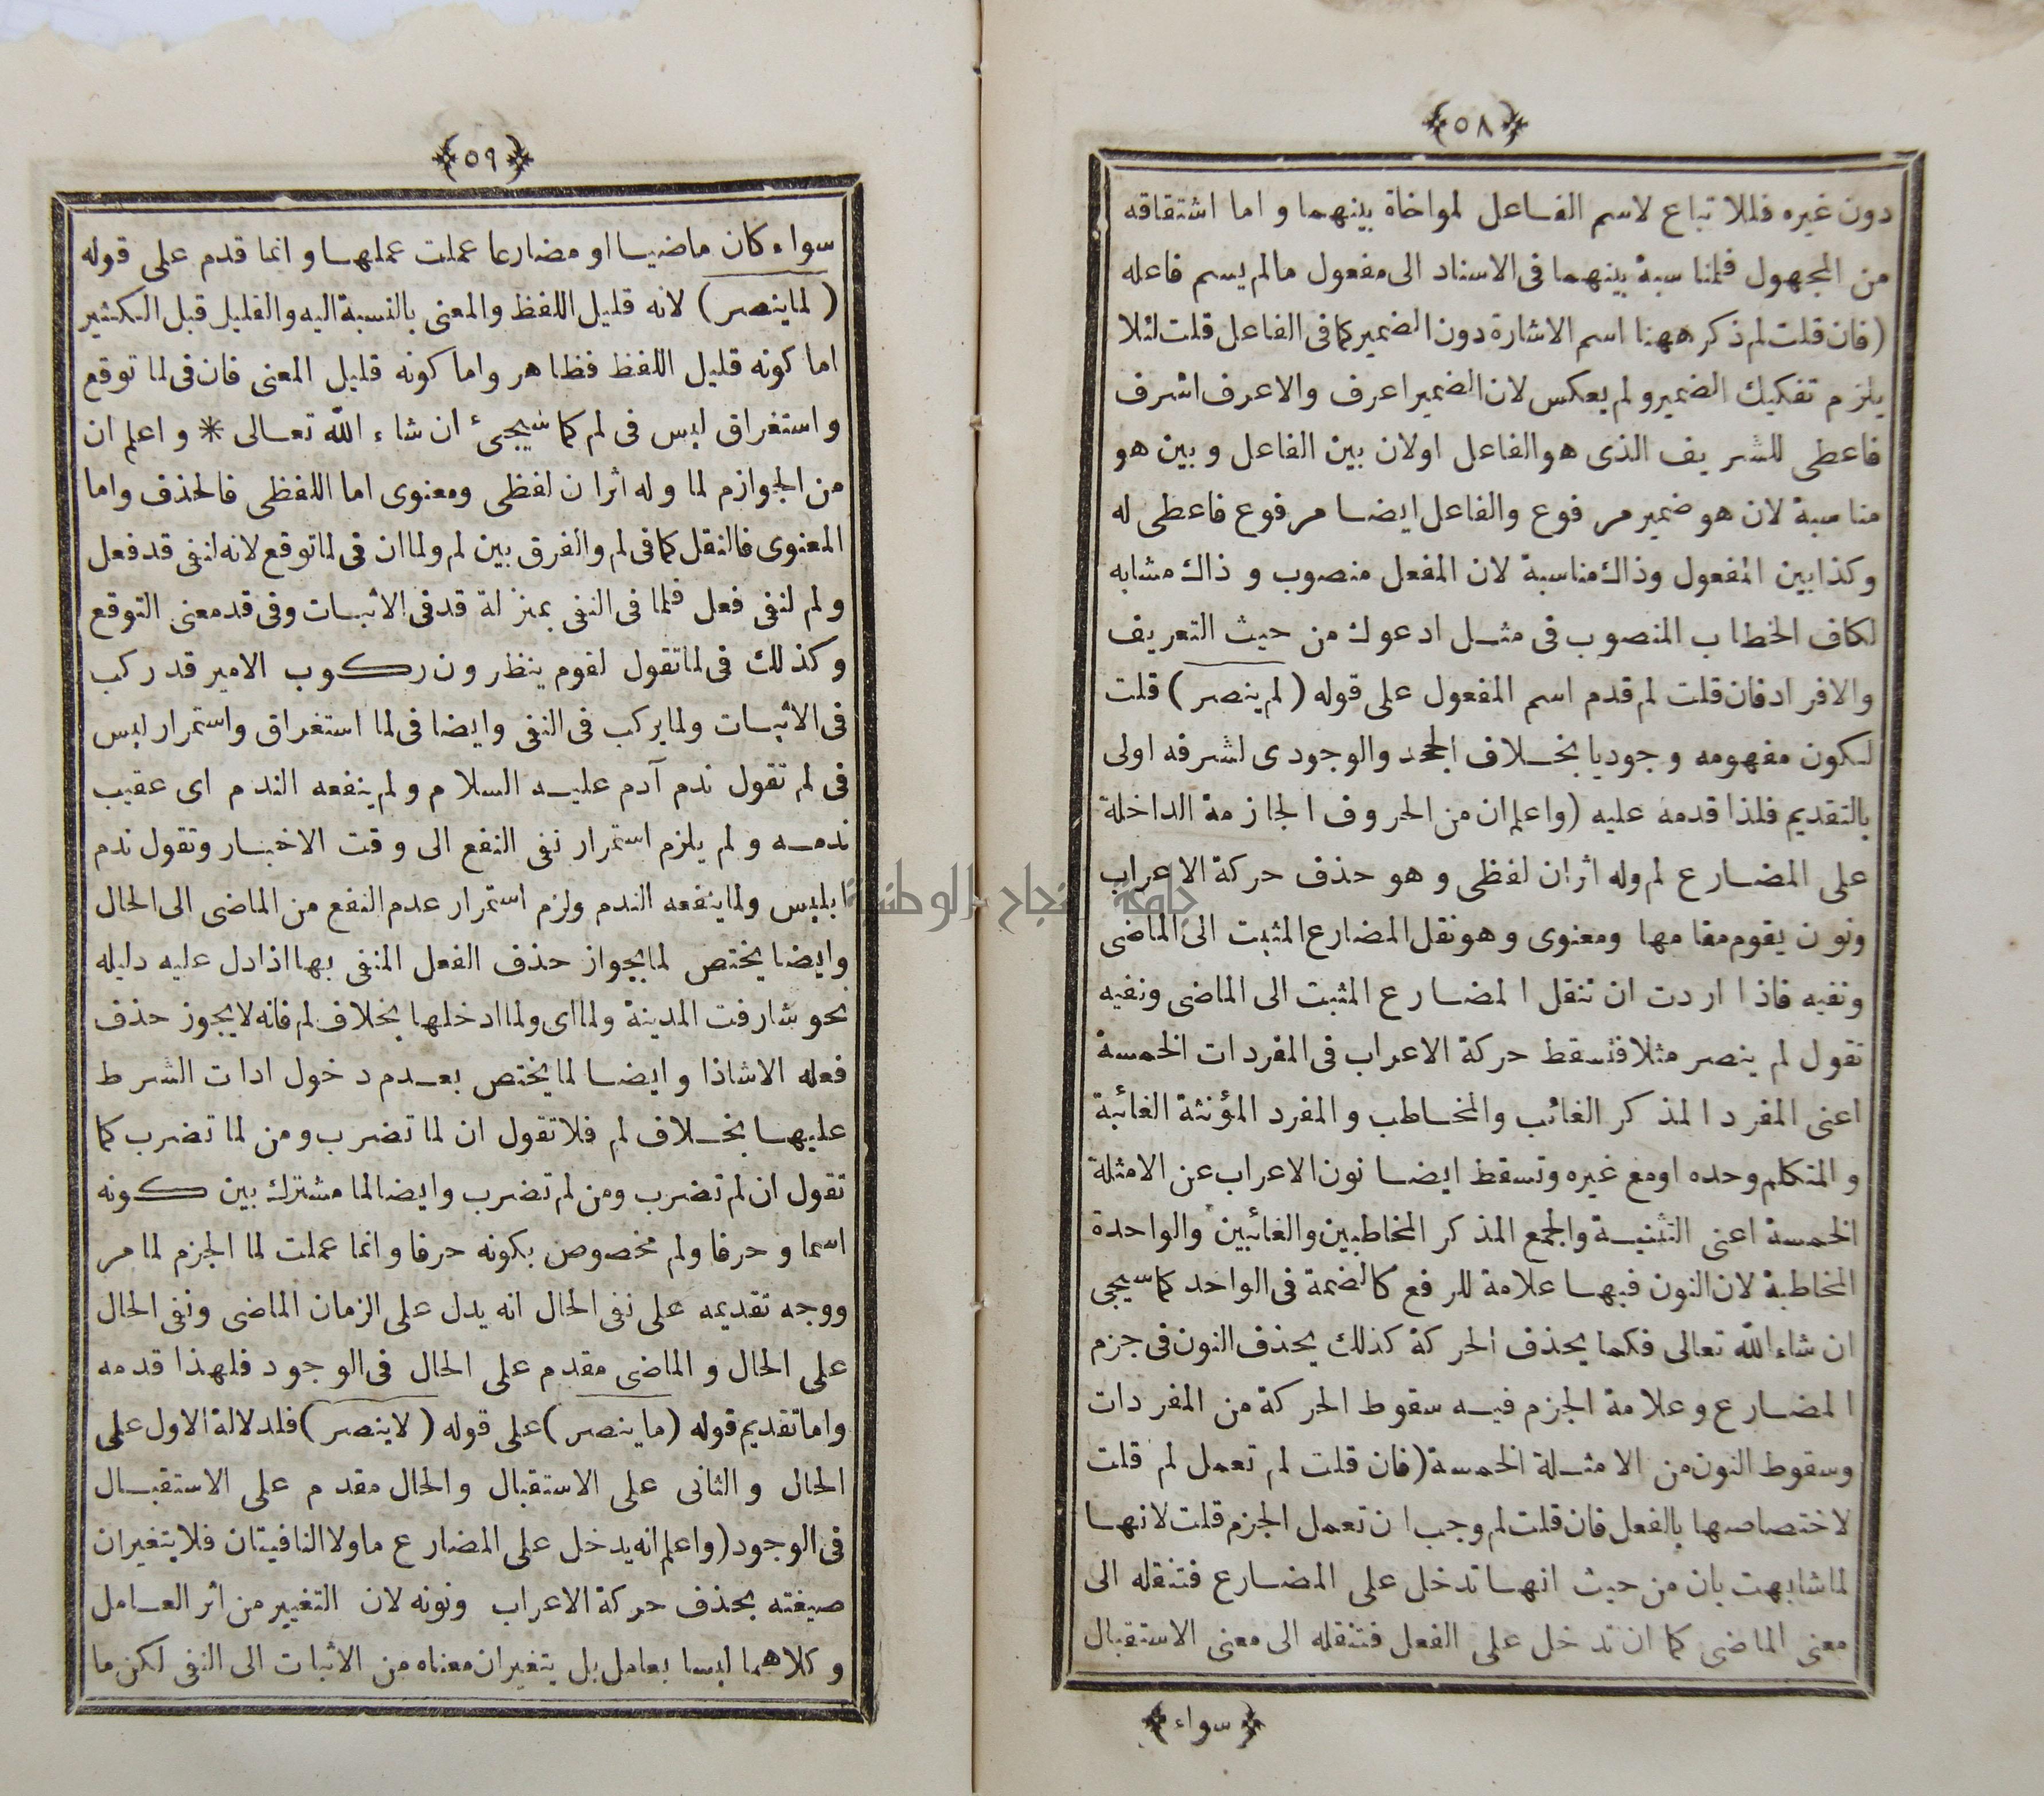 ﴿٥٨﴾
دون غيره فللاتباع لاسم الفاعل لمواخاة بينهما و اما اشتقاقه
من المجهول فلمناسبة بينهما فى الاسناد الى مفعول مالم يسم فاعله
(فان قلت لم ذكر ههنا اسم الاشارة دون الضمير كما فى الفاعل قلت لئلا
يلزم تفكيك الضمير ولم يعكس لان الضمير اعرف والاعرف اشرف
فاعطى للشريف الذى هو الفاعل اولان بين الفاعل وبين هو
مناسبة لان هو ضمير مرفوع والفاعل ايضا مرفوع فاعطى له
وكذا بين المفعول وذاك مناسبة لان المفعل منصوب و ذاك مشابه
لكاف الخطاب المنصوب فى مثل ادعوك من حيث التعريف
والافراد فان قلت لم قدم اسم المفعول على قوله (لم ينصر) قلت
لكون مفهومه وجوديا بخلاف الجحد والوجودى لشرفه اولى
بالتقديم فلذا قدمه عليه (واعلم ان من الحروف الجازمة الداخلة
على المضارع لم وله اثران لفظى و هو حذف حركة الاعراب
ونون يقوم مقامها ومعنوى وهو نقل المضارع المثبت الى الماضى
ونفيه فاذا اردت ان تنقل المضارع المثبت الى الماضى ونفيه
تقول لم ينصر مثلا فتسقط حركة الاعراب فى المفردات الخمسة
اعنى المفرد المذكر الغائب والمخاطب والمفرد المؤنثة الغائبة
و المتكلم وحده اومع غيره وتسقط ايضا نون الاعراب عن الامثلة
الخمسة اعنى التثنية والجمع المذكر المخاطبين والغائبين والواحدة
المخاطبة لان النون فيها علامة للرفع كالضمة فى الواحد كما سيجى
ان شاء الله تعالى فكما يحذف الحركة كذلك يحذف النون فى جزم
المضارع وعلامة الجزم فيه سقوط الحركة من المفردات
وسقوط النون من الامثلة الخمسة (فان قلت لم تعمل لم قلت
لاختصاصها بالفعل فان قلت لم وجب ان تعمل الجزم قلت لانها
لما شابهت بان من حيث انها تدخل على المضارع فتنقله الى
معنى الماضى كما ان تدخل على الفعل فتنقله الى معنى الاستقبال
﴿سواء﴾
﴿٥٩﴾
سواء كان ماضيا او مضارعا عملت عملها و انما قدم على قوله
(لما ينصر) لانه قليل اللفظ والمعنى بالنسبة اليه والقليل قبل الكثير
اما كونه قليل اللفظ فظاهر واما كونه قليل المعنى فان فى لما توقع
واستغراق ليس فى لم كما سيجىء ان شاء الله تعالى * و اعلم ان
من الجوازم لما وله اثران لفظى ومعنوى اما اللفظى فالحذف واما
المعنوى فالنقل كما فى لم والفرق بين لم ولما ان فى لما توقع لانه لنفى قد فعل
ولم لنفى فعل فلما فى النفى بمنزلة قد فى الاثبات وفى قد معنى التوقع
وكذلك فى لما تقول لقوم ينظرون ركوب الامير قد ركب
فى الاثبات ولما يركب فى النفى وايضا فى لما استغراق واستمرار ليس
فى لم تقول ندم آدم عليه السلام ولم ينفعه الندم اى عقيب
ندمه ولم يلزم استمرار نفى النفع الى وقت الاخبار وتقول ندم
ابليس ولما ينفعه الندم ولزم استمرار عدم النفع من الماضى الى الحال
وايضا يختص لما بجواز حذف الفعل المنفى بها اذا دل عليه دليله
نحو شارفت المدينة ولما اى ولما ادخلها بخلاف لم فانه لا يجوز حذف
فعله الا شاذا وايضا لما يختص بعدم دخول ادات الشرط
عليها بخلاف لم فلا تقول ان لما تضرب ومن لما تضرب كما
تقول ان لم تضرب ومن لم تضرب وايضا لما مشترك بين كونه
اسما و حرفا ولم مخصوص بكونه حرفا وانما عملت لما الجزم لما مر
ووجه تقديمه على نفى الحال انه يدل على الزمان الماضى ونفى الحال
على الحال والماضى مقدم على الحال فى الوجود فلهذا قدمه
واما تقديم قوله (ما ينصر) على قوله (لاينصر) فلدلالة الاول على
الحال و الثانى على الاستقبال والحال مقدم على الاستقبال
فى الوجود (واعلم انه يدخل على المضارع ما ولا النافيتان فلا يتغيران
صيغته بحذف حركة الاعراب ونونه لان التغيير من اثر العامل
وكلاهما ليسا بعامل بل يتغيران معناه من الاثبات الى النفى لكن ما
جامعة النجاح الوطنية